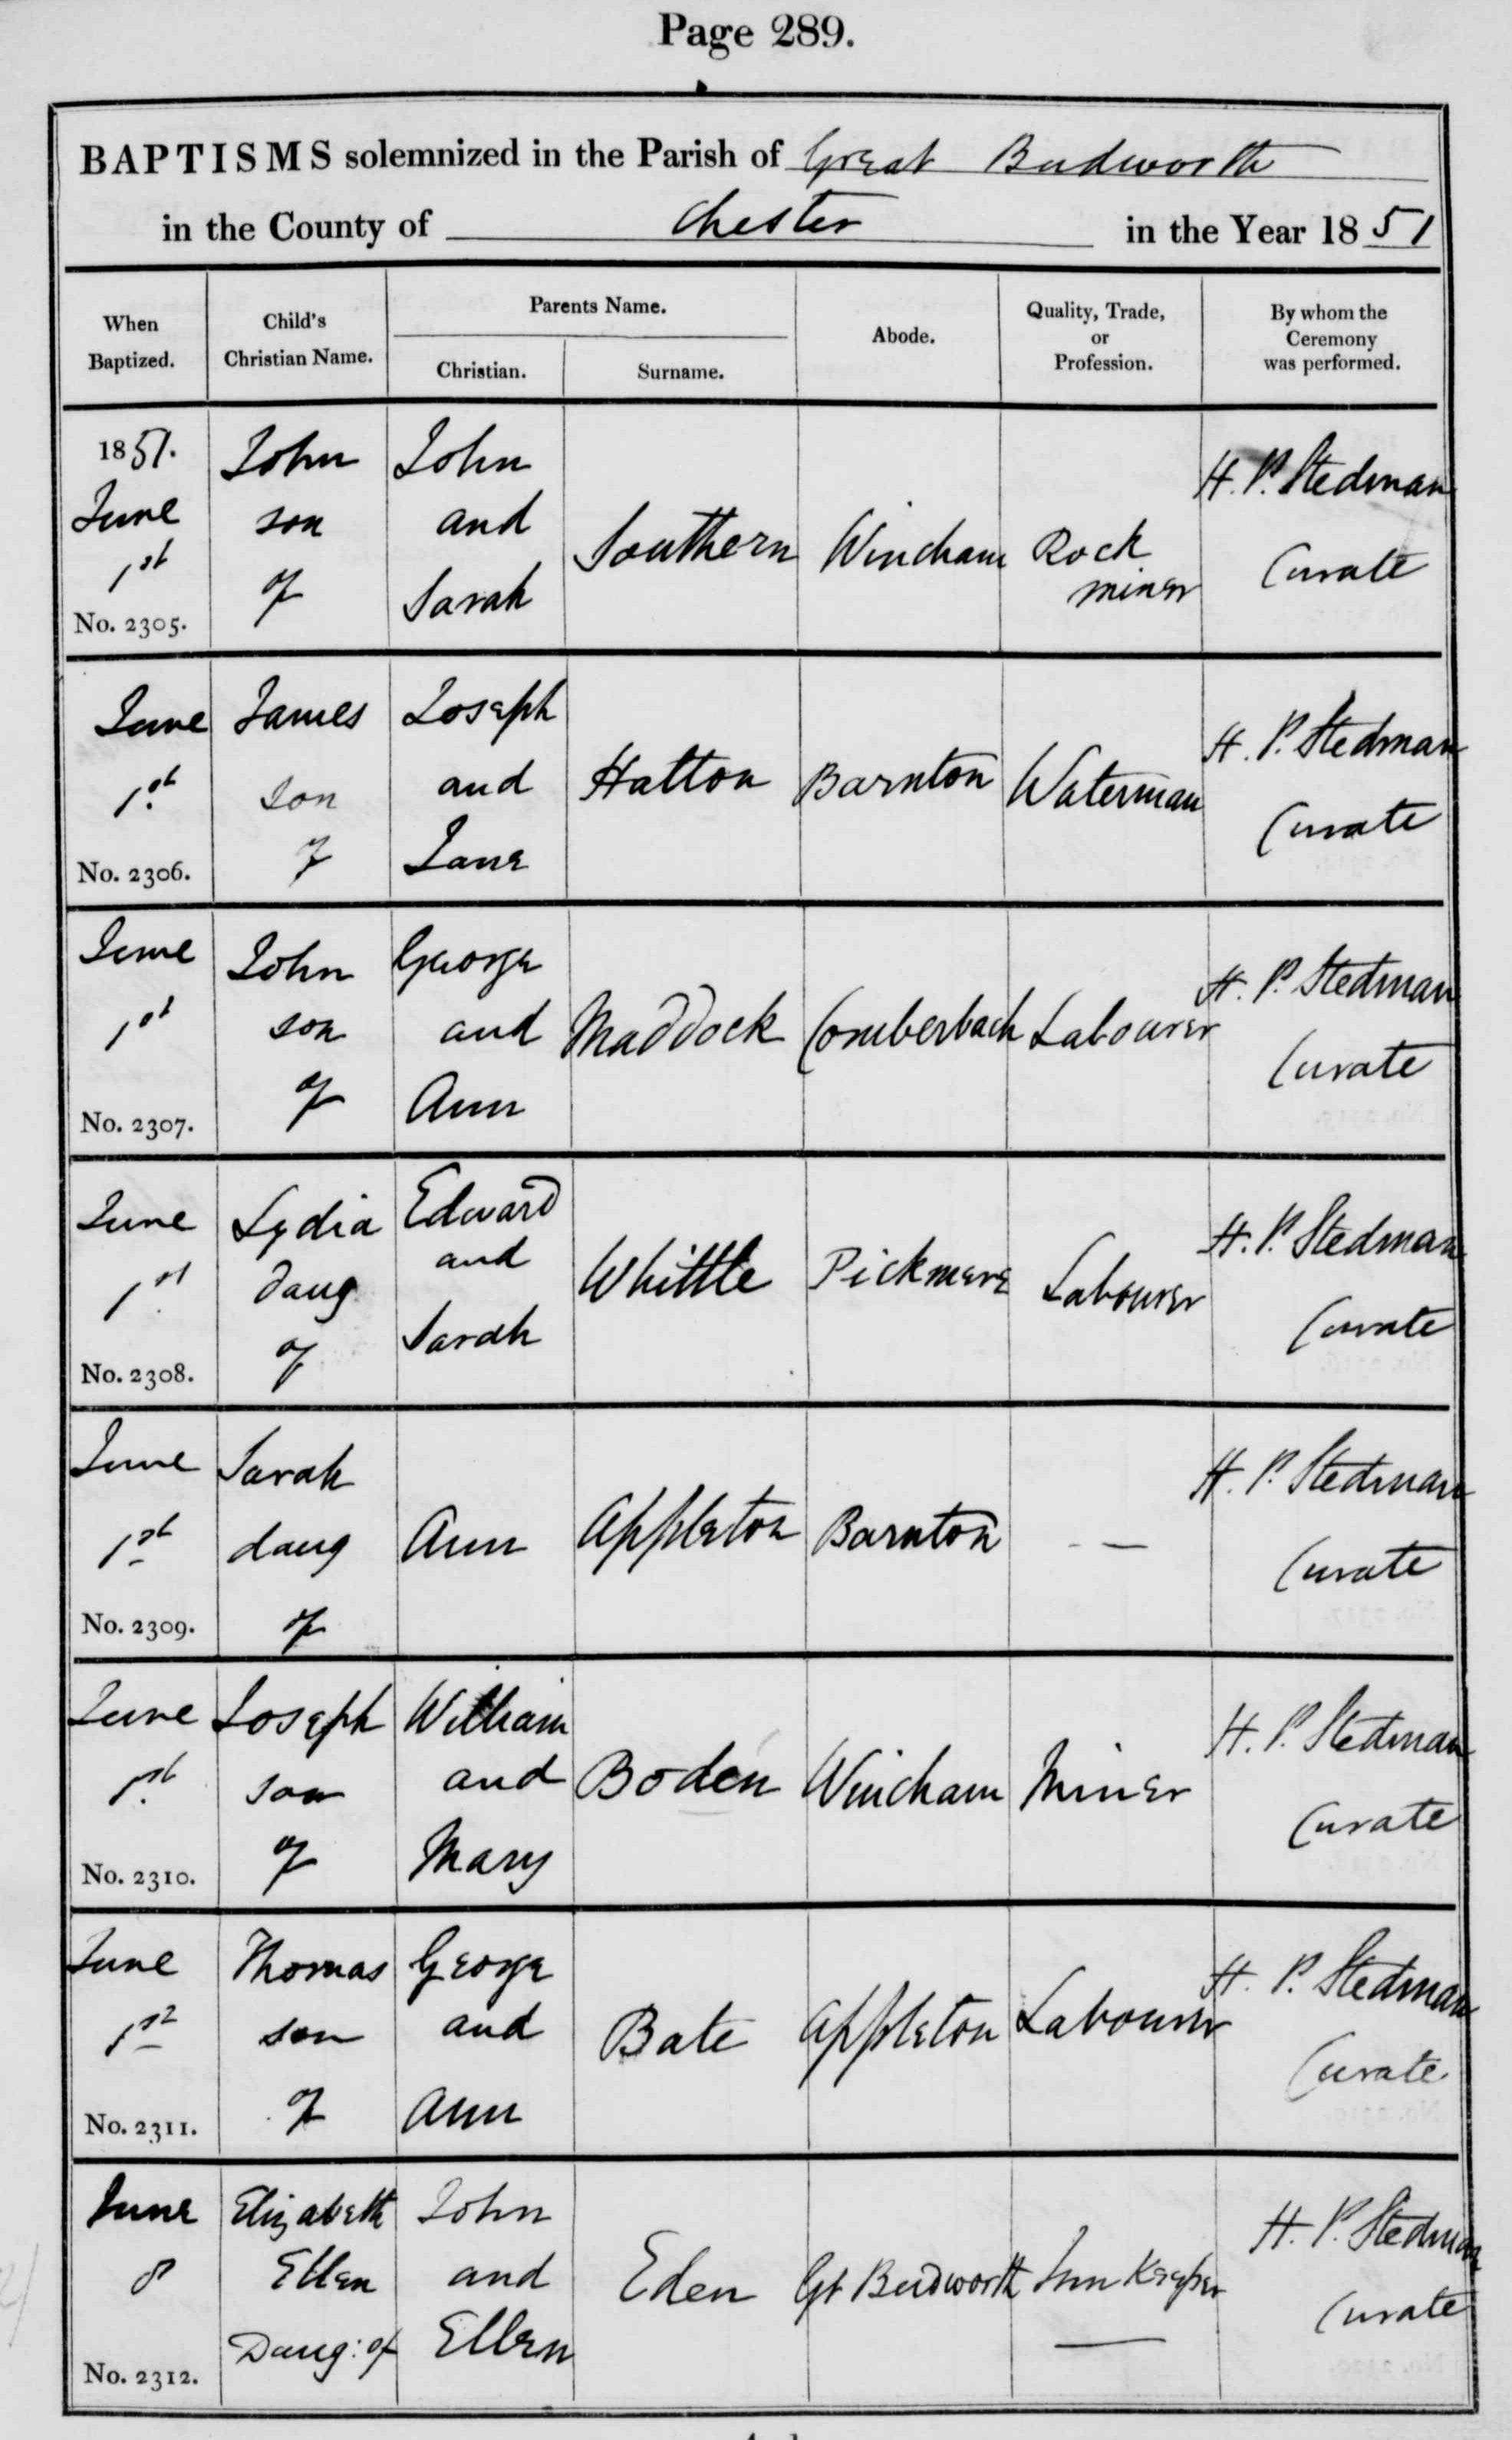 Page 289.
BAPTISMS solemnized in the Parish of Great Budworth
in the County of Chester in the Year 1851
When Baptized.
Child's Christian Name.
Parents Name.
Christian.
Surname.
Abode.
Quality, Trade, or Profession.
By whom the Ceremony was performed.
1851.
June
1st
No. 2305.
John
son
of
John
and
Sarah
Southern
Wincham
Rock
miner
H. P. Stedman
Curate
June
1st
No. 2306.
James
son
of
Joseph
and
Jane
Hatton
Barnton
Waterman
H. P. Stedman
Curate
June
1st
No. 2307.
John
son
of
George
and
Ann
Maddock
Comberbach
Labourer
H. P. Stedman
Curate
June
1st
No. 2308.
Lydia
Daug
of
Edward
and
Sarah
Whittle
Pickmere
Labourer
H. P. Stedman
Curate
June
1st
No. 2309.
Sarah
daug
of
Ann
Appleton
Barnton
—
H. P. Stedman
Curate
June
1st
No. 2310.
Joseph
son
of
William
and
Mary
Boden
Wincham
Miner
H. P. Stedman
Curate
June
1st
No. 2311.
Thomas
son
of
George
and
Ann
Bate
Appleton
Labourer
H. P. Stedman
Curate
June
8
No. 2312.
Elizabeth
Ellen
Daug: of
John
and
Ellen
Eden
Gt Budworth
Inn Keeper
H. P. Stedman
Curate